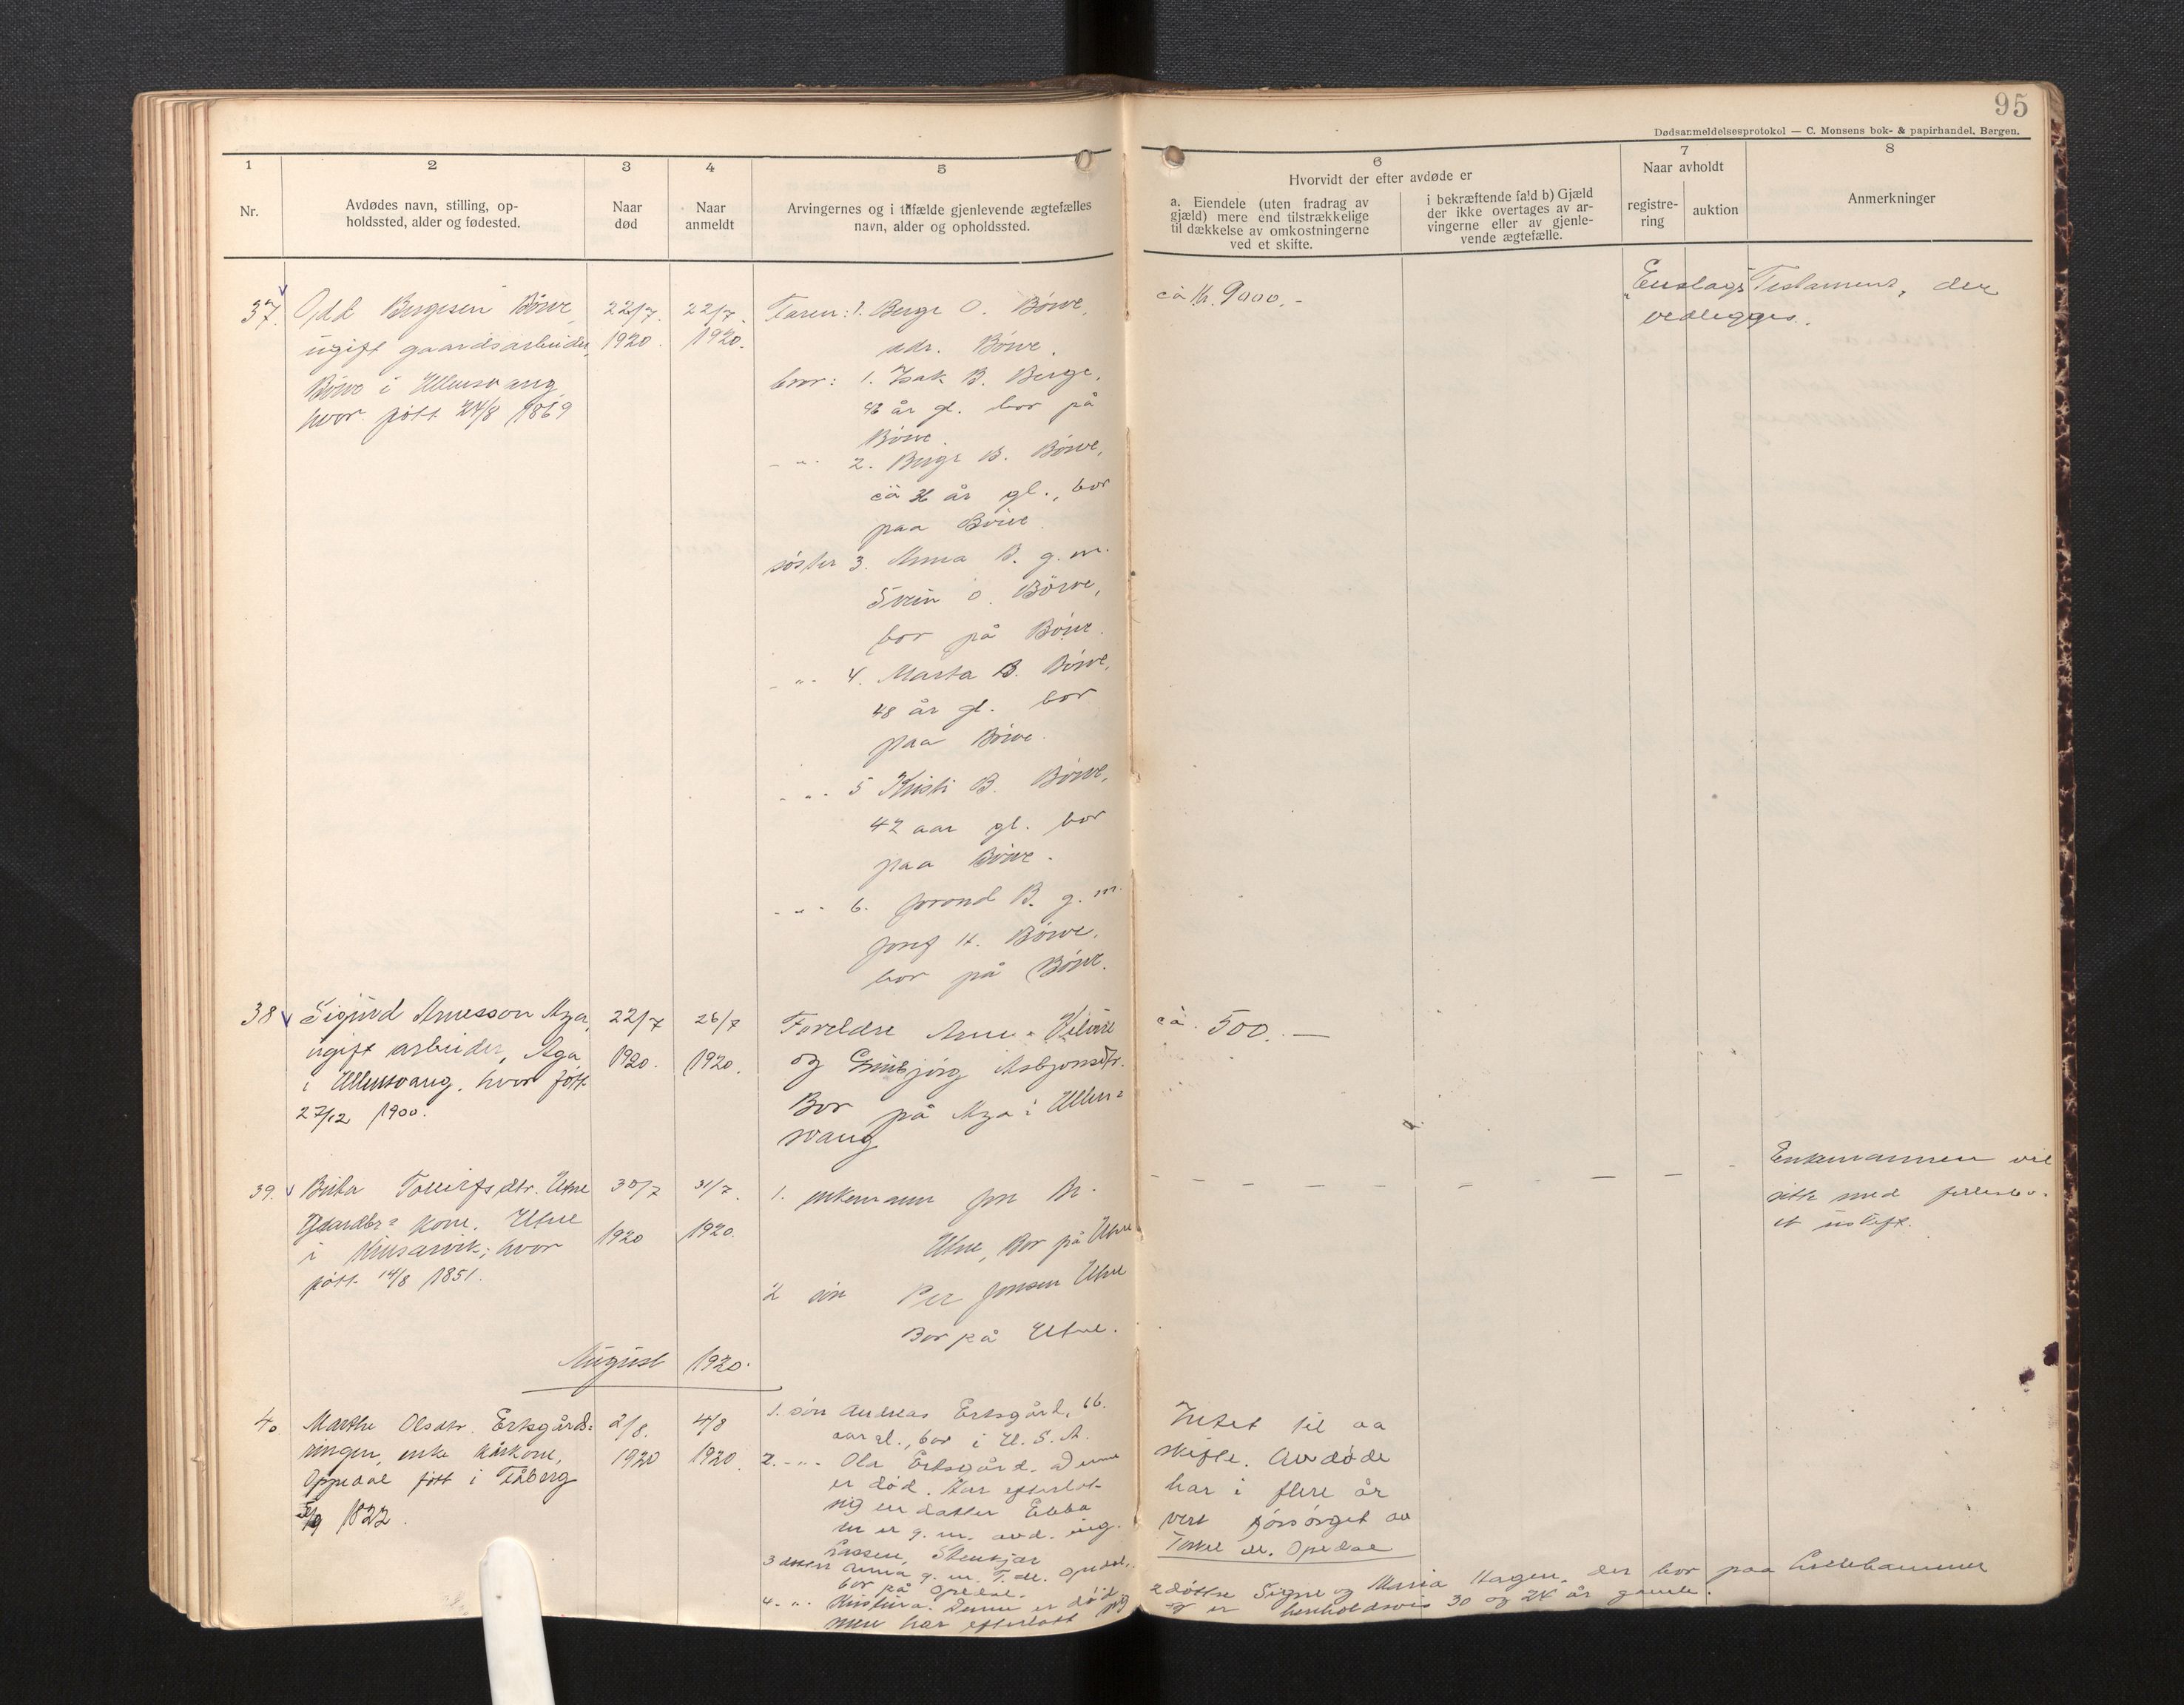 95
Dødsanmeldelsesprotokol — C. Monsens bok- & papirhandel, Bergen.
1
2
3
4
5
6
7
8
Nr.
Avdødes navn, stilling, op-
holdssted, alder og fødested.
Naar
død
Naar
anmeldt
Arvingernes og i tilfælde gjenlevende ægtefælles
navn, alder og opholdssted.
Hvorvidt der efter avdøde er
a. Eiendele (uten fradrag av
gjæld) mere end tilstrækkelige
til dækkelse av omkostningerne
ved et skifte.
i bekræftende fald b) Gjæld
der ikke overtages av ar-
vingerne eller av gjenle-
vende ægtefælle.
Naar avholdt
registre-
ring
auktion
Anmerkninger
37.
Odd Bergesen Börve,
ugift gaardsarbeider,
Börve i Ullensvang,
hvor født 24/8 1869
22/7.
1920.
22/7.
1920.
Faren: 1. Berge O. Börve,
adr. Börve.
bror: 1. Isak B. Berge,
46 år gl. bor på
Börve.
- " - 2. Berge B. Börve,
ca 36 år gl., bor
paa Börve.
søster 3. Anna B. g. m.
Svein O. Börve,
bor på Börve.
- " - 4. Marta B. Börve,
48 år gl. bor
paa Börve.
- " - 5 Kristi B. Börve,
42 aar gl. bor
paa Börve.
- " - 6. Jorond B. g. m.
Josef H. Börve,
bor på Börve.
ca kr. 9000.-
Testament, der
vedlegges.
38
Sigurd Arnesson Aga,
ugift arbeider, Aga
i Ullensvang, hvor født
27/12 1900.
22/7
1920.
26/7
1920.
Foreldre Arne
og Asbjørnsdtr.
Bor på Aga i Ullen=
svang
ca. 500.—
39.
Brita Tolleifsdtr. Utne
Gaardbr= kone, Utne
i Kinsarvik; hvor
født 14/8 1851.
30/7
1920
31/7.
1920.
1. enkemann Jon
Utne, Bor på Utne
2 søn Per Jonsen Utne
Bor på Utne.
Enkemannen vil
sitte med fellesbo-
et uskift.
August 1920.
40
Marthe Olsdtr. Ersgård=
ringen, enke kårkone,
Oppedal født i Fåberg
1822.
2/8.
1920
4/8
1920.
1. søn Andreas Ersgård, 66.
aar gl., bor i U. S. A.
2. - " - Ola Ersgård. Denne
er død. Har efterlat
sig en datter Ebba
g. m. avd. ing.
Lassen, Stenkjær
3 datter Anna g. m. T. Opedal,
bor på Opedal.
4. - " - Kristina. Denne er død
men har efterlatt sig
Intet til aa
skifte. Avdøde
har i flere år
vert forsørget av
Torkel Opedal
2 døttre Signe og Maria Hagen, der bor paa Lillehammer
og er henholdsvis 30 og 24 år gamle.